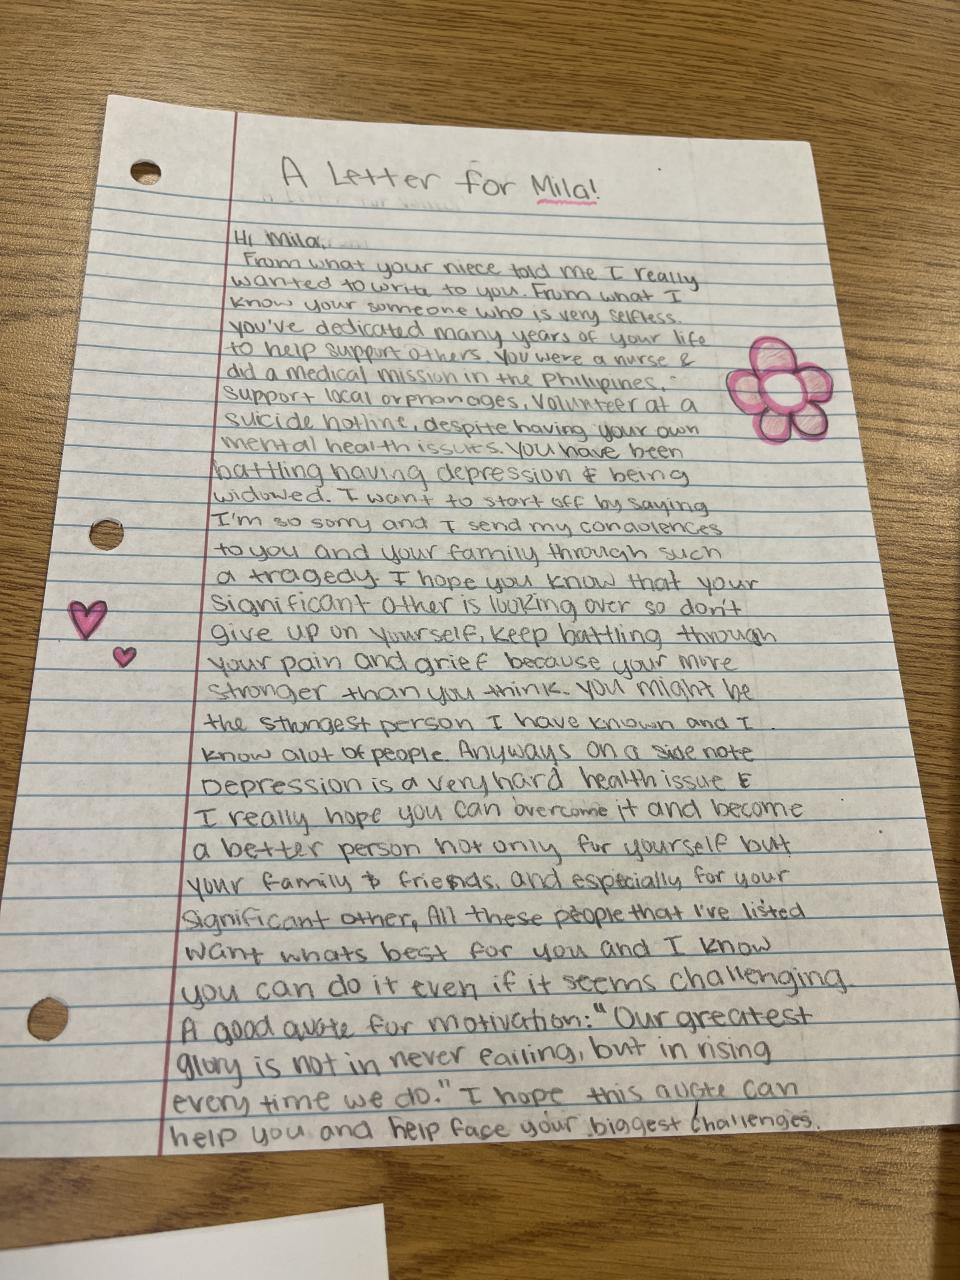 A Letter for Mila!
Hi Mila,
From what your niece told me I really
wanted to write to you. From what I
know your someone who is very selfless.
you've dedicated many years of your life
to help support others. You were a nurse &
did a medical mission in the Phillipines,
support local orphanages, Volunteer at a
suicide hotline, despite having your own
mental health issues. You have been
battling having depression & being
widowed. I want to start off by saying
I'm so sorry and I send my condolences
to you and your family through such
a tragedy. I hope you know that your
significant other is looking over so don't
give up on yourself, keep battling through
your pain and grief because your more
stronger than you think. You might be
the strongest person I have known and I
know alot of people. Anyways on a side note
Depression is a very hard health issue &
I really hope you can overcome it and become
a better person not only for yourself but
your family & friends. and especially for your
significant other, All these people that I've listed
want whats best for you and I know
you can do it even if it seems challenging.
A good quote for motivation: "Our greatest
glory is not in never failing, but in rising
every time we do." I hope this quote can
help you and help face your biggest challenges.